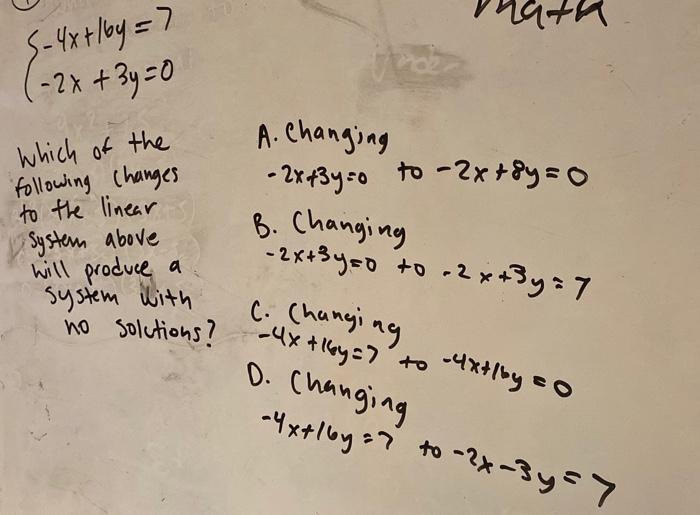 math
-4x+16y=7
-2x+3y=0
Which of the
following changes
to the linear
system above
will produce a
system with
no solutions?
A. Changing
-2x+3y=0 to -2x+8y=0
B. Changing
-2x+3y=0 to -2x+3y=7
C. Changing
-4x+16y=7 to -4x+16y=0
D. Changing
-4x+16y=7 to -2x-3y=7